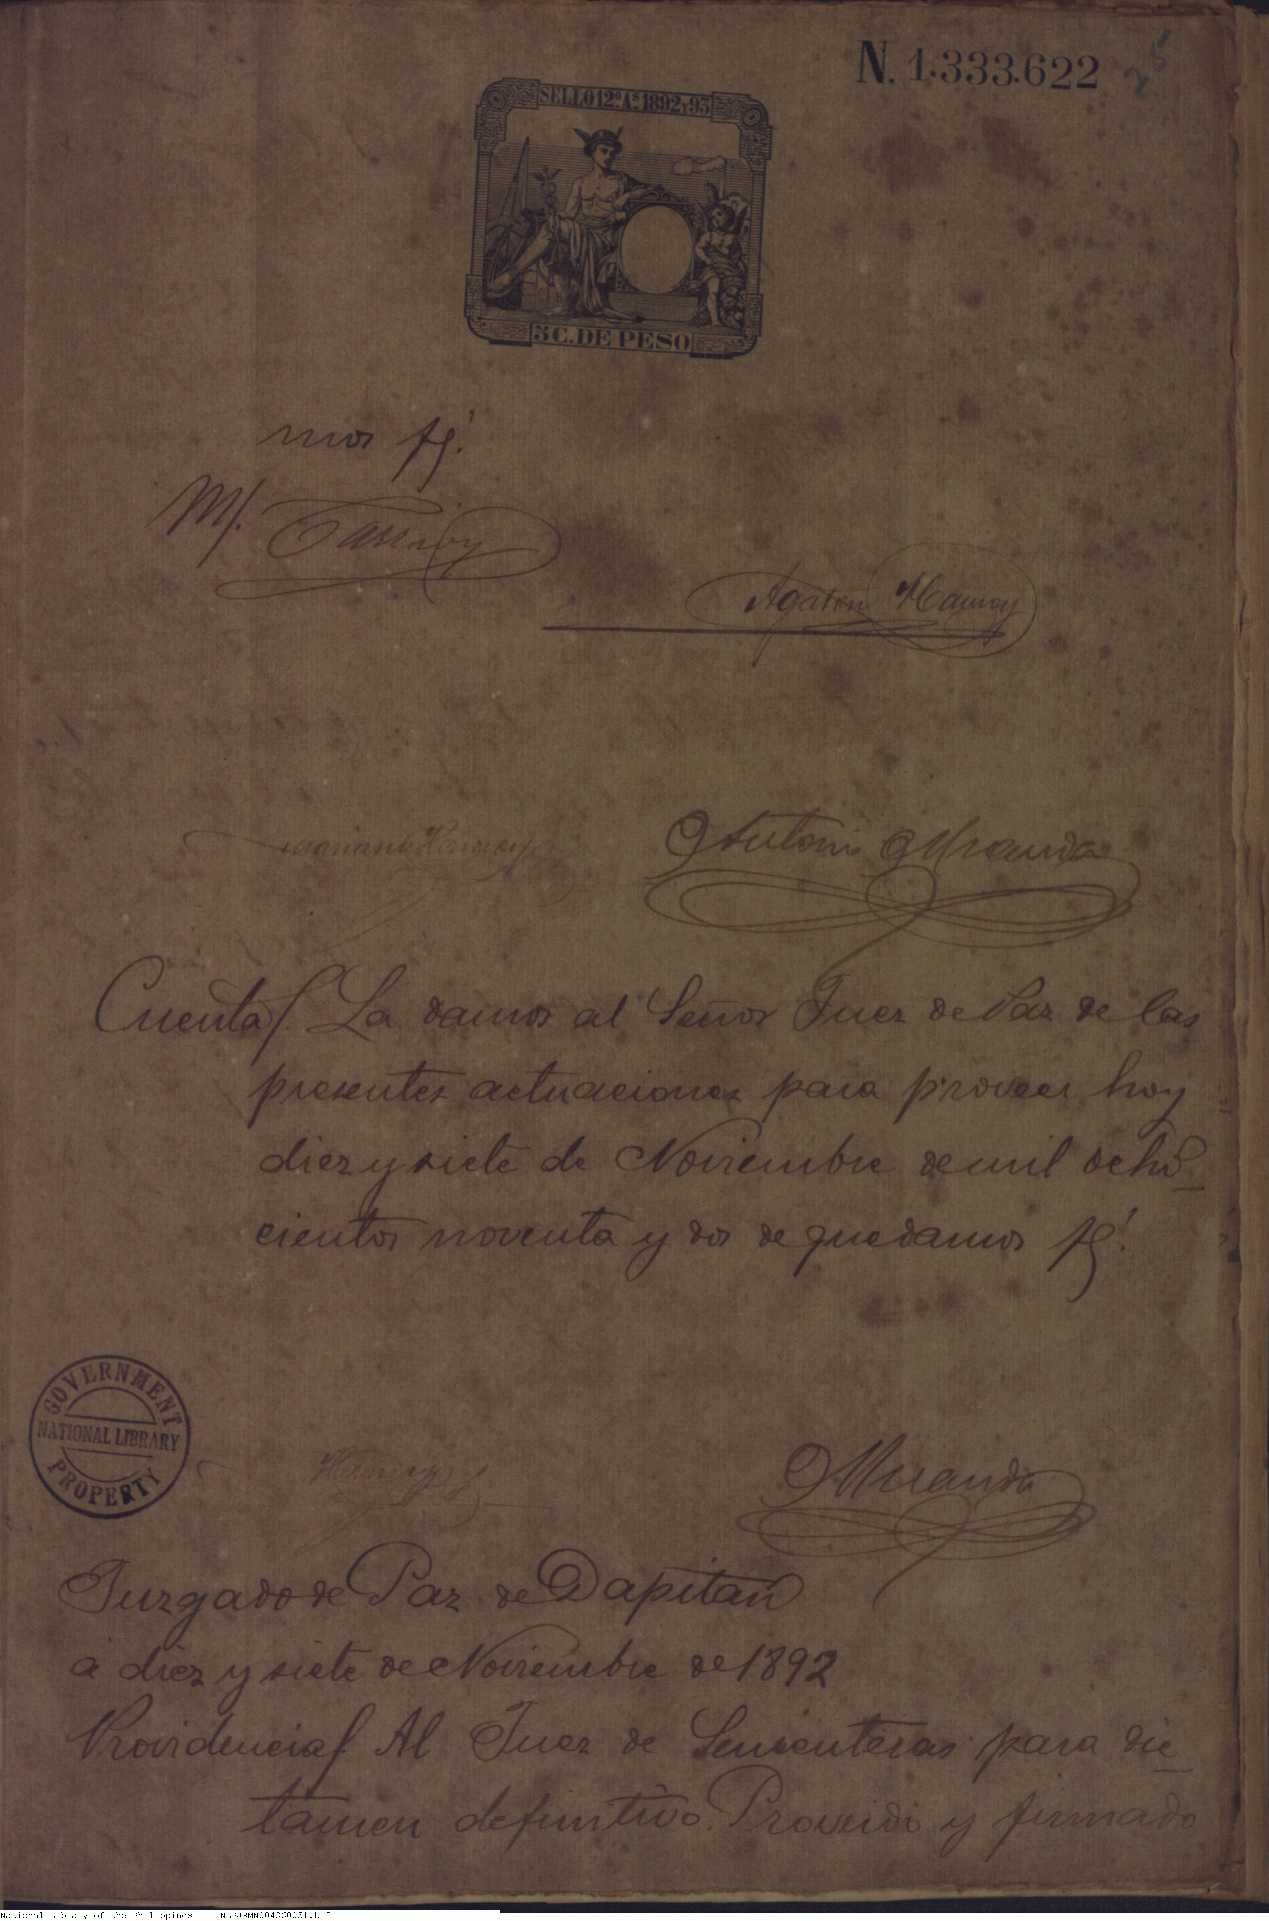 N. 1.333.622
25
SELLO 12º Aˢ 1892 Y 93
5 C. DE PESO
mos fé.
M/.
Agaton Hamoy
Mariano Hamoy Antonio Miranda
Cuenta/. La damos al Señor Juez de Paz de las
presentes actuaciones para proveer hoy
diez y siete de Noviembre de mil ocho_
cientos noventa y dos de quedamos fé.
GOVERNMENT
NATIONAL LIBRARY
PROPERTY
Hamoy Miranda
Juzgado de Paz de Dapitan
a diez y siete de Noviembre de 1892
Providencia/. Al Juez de Sementeras para dic_
tamen definitivo. Proveido y firmado
National Library of the Philippines